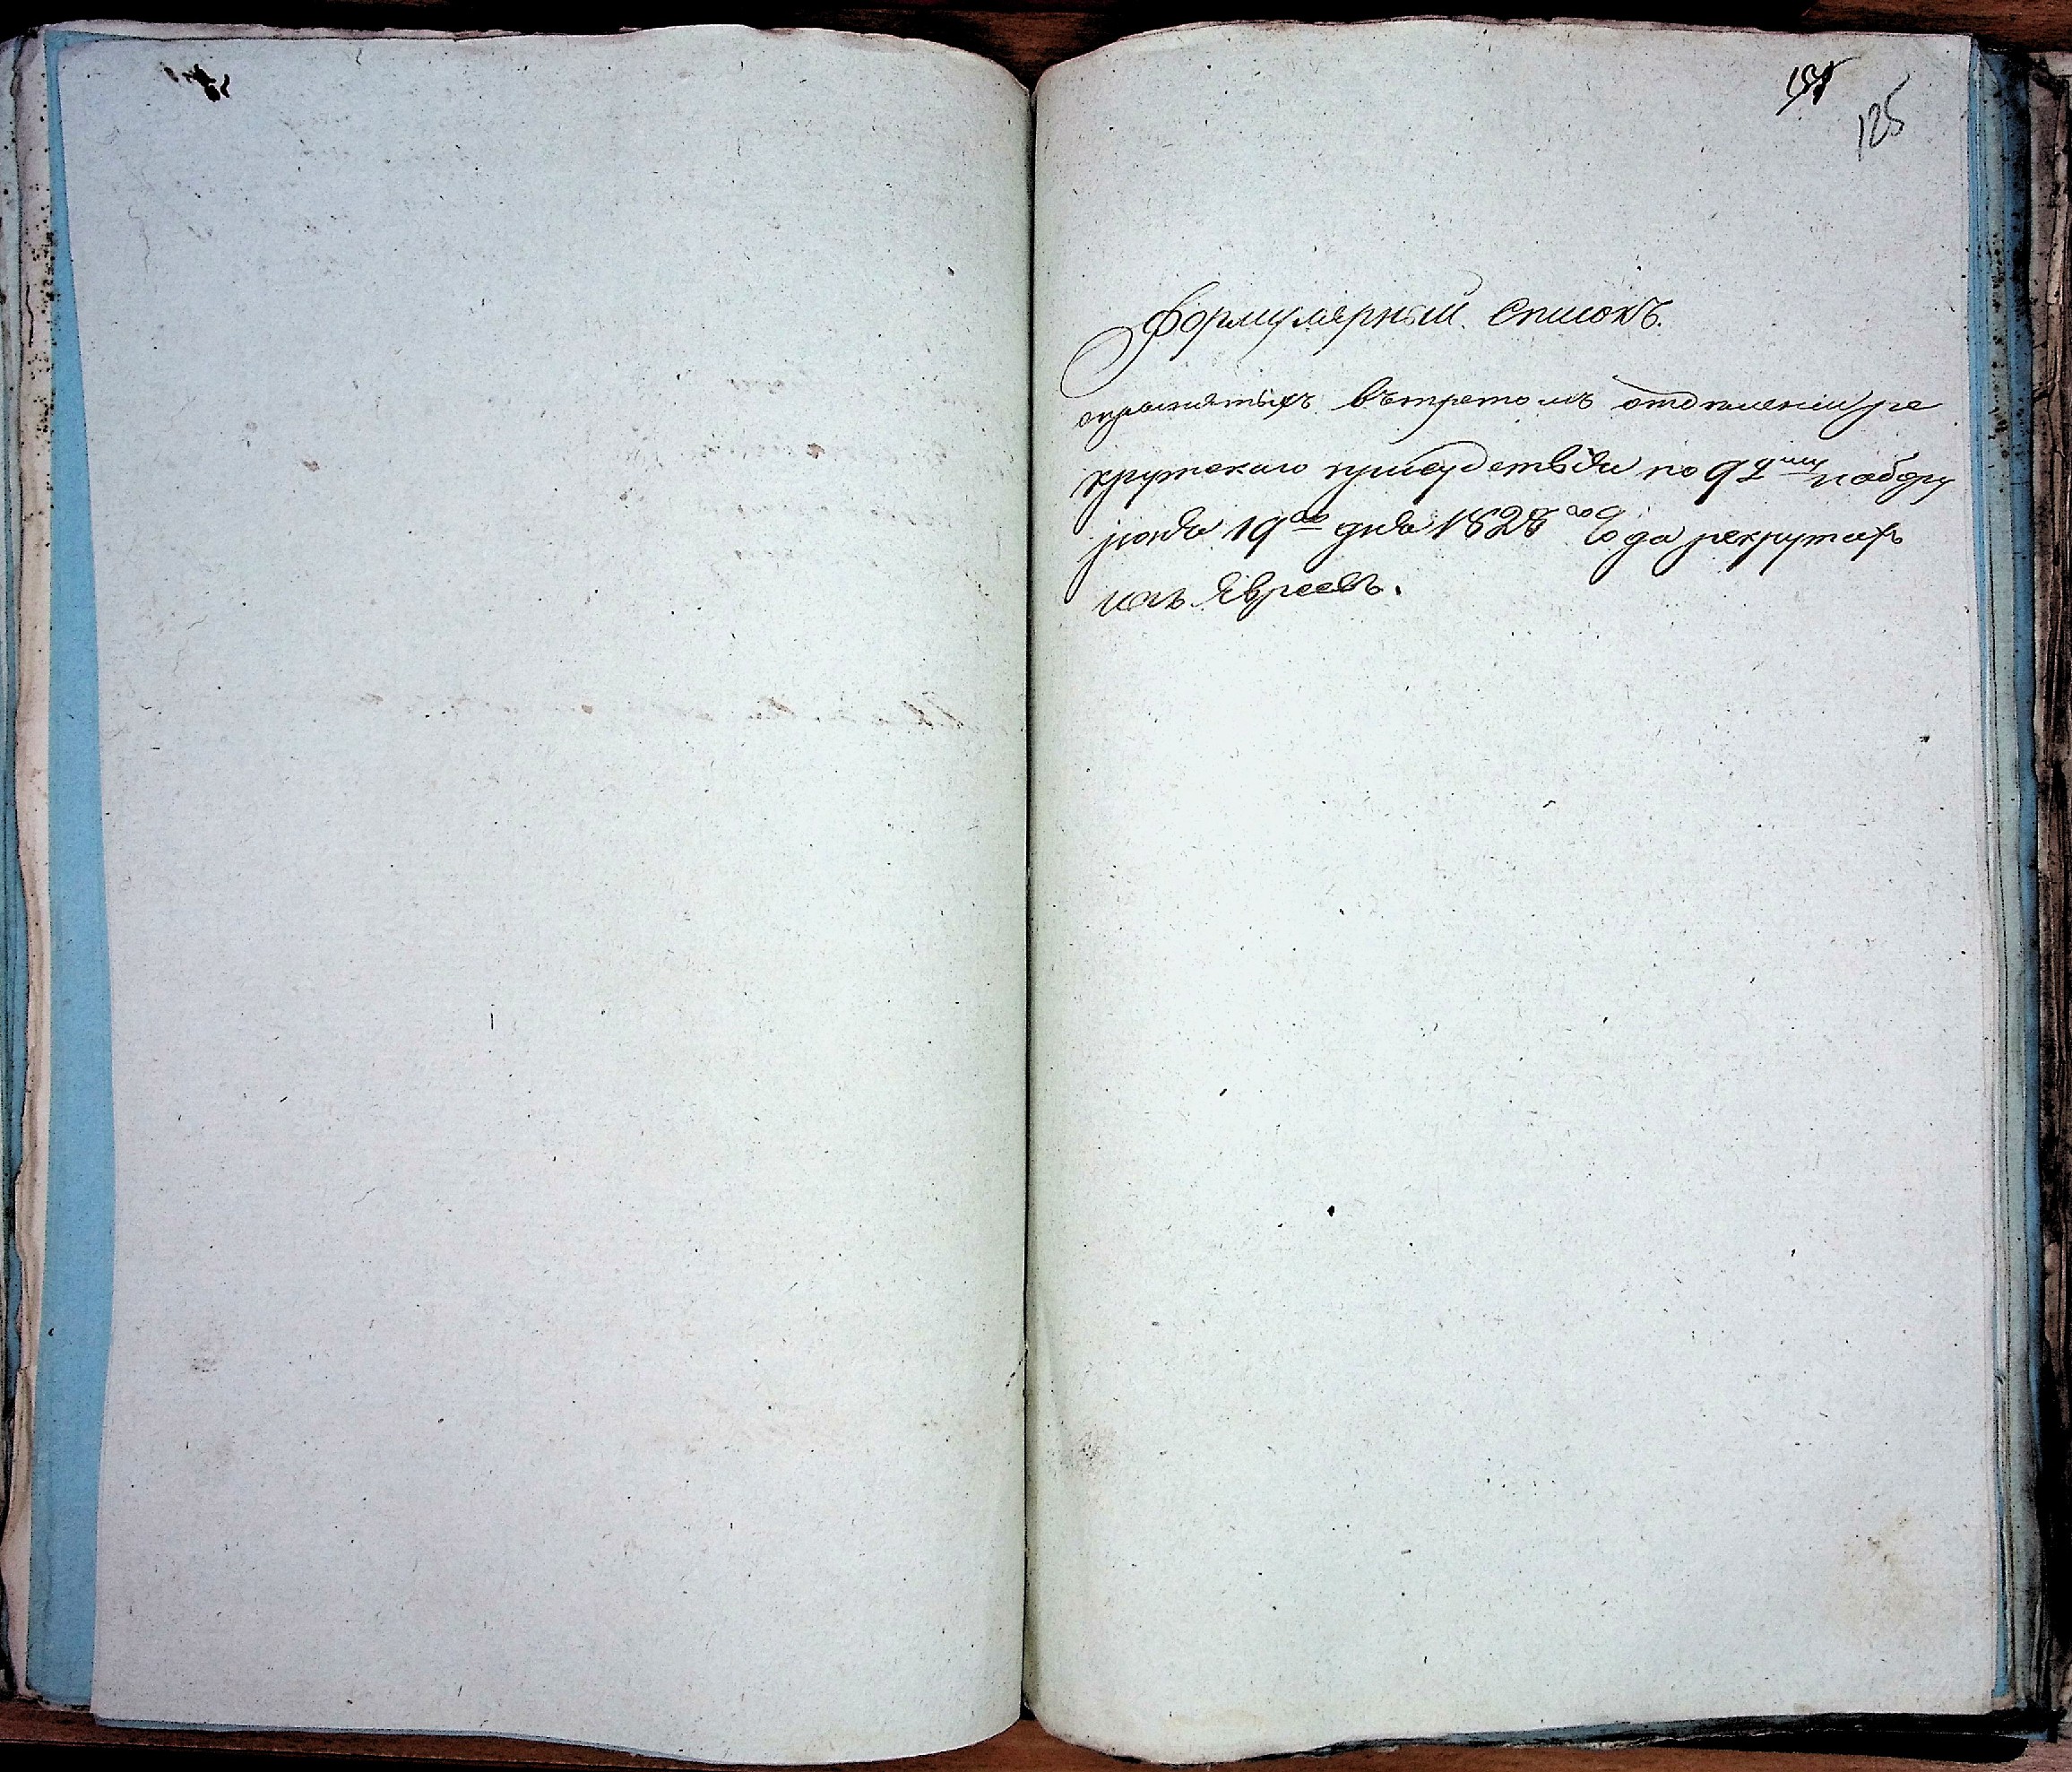 125
Формулярный Списокъ.
опринятыхъ вътретомъ отделении ре
крутскаго присудствія по 92ᵐу набору
іюня 19го дня 1828го Года рекрутахъ
изъ Евреевъ.